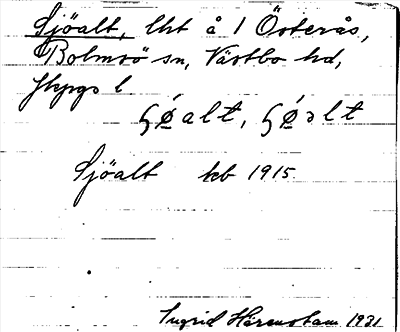 Sjöalt, lht å 1 Österås,
Bolmsö sn, Västbo hd,
Jkpgs l.
ʂǿalt, ʂǿəlt
Sjöalt kb 1915.
Ingrid Härenstam 1931